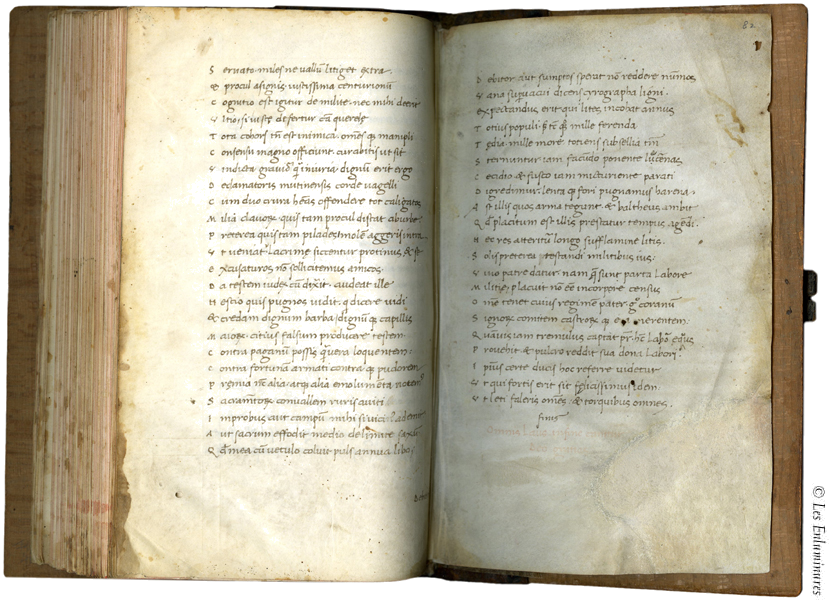 S ervato miles ne vallū litiget extra.
& procul a signis. iustissima centurionū
C ognitio est igitur de milite. nec mihi deerit
V ltio. si iuste defertur cā querele
T ota cohors tn̄ est inimica. om̄es q; manipli
C onsensu magno officiunt. curabitis ut sit
V indicta gravior q̄ iniuria. dignū erit ergo
D eclamatoris mutinensis corde vagelli
C um duo crura hēas offendere tot caligatos
M ilia clavorꝝ. quis tam procul distat ab urbe
P reterea quis tam pilades molē aggeris intra
V t veniat lacrime siccentur protinus & se
E xcusaturos nō sollicitemus amicos
D a testem iudex cū dixit. audeat ille
N escio quis pugnos vidit. q dicere vidi
& credam dignum barba. dignūq; capillis
M aiorꝝ. citius falsum producere testem
C ontra paganū possis. q̄ vera loquentem
C ontra fortunā armati contra q; pudorem
P remia nc̄ alia. atq; alia emolumēta
S acramētorꝝ. convallem ruris aviti
I mprobus aut campū mihi si ademit
A ut sacrum effodit medio de limite saxū
Q d̄ mea cū vetulo coluit puls annua libo
82
D ebitor aut sumptos pergit nō reddere nūmos
V ana supvacui dicens cyrographa ligni.
Expectandus erit qui lites incohat annus
T otius populi. s; tc̄ q; mille ferenda
T edia. mille more. totiens subsellia tm̄
S ternuntur iam facundo ponente lucernas
C edicio & fusco iam micturiente parati
D igredimur. lenta q; fori pugnamus harena.
A st illis quos arma tegunt & baltheus ambit
Q d̄ placitum est illis prestatur tempus agēdi.
N ec res atteritur longo sufflamine litis.
S olis preterea testandi militibus ius.
V ivo patre datur nam q̄ sunt parta labore
M ilitie. placuit nō eē in corpore census
O mē tenet cuius regimē pater. gͦ coranum
S ignorꝝ comitem castrorꝝ q; era merentem.
Q uavis iam tremulus captat pr̄. hc̄ labor equus
P rovehit & pulcro reddit sua dona labori.
I pius certe ducis hoc referre videtur
V t qui fortis erit sit felicissimus idem
V t leti faleris om̄es. & torquibus omnes.
finis
© Les Enluminures